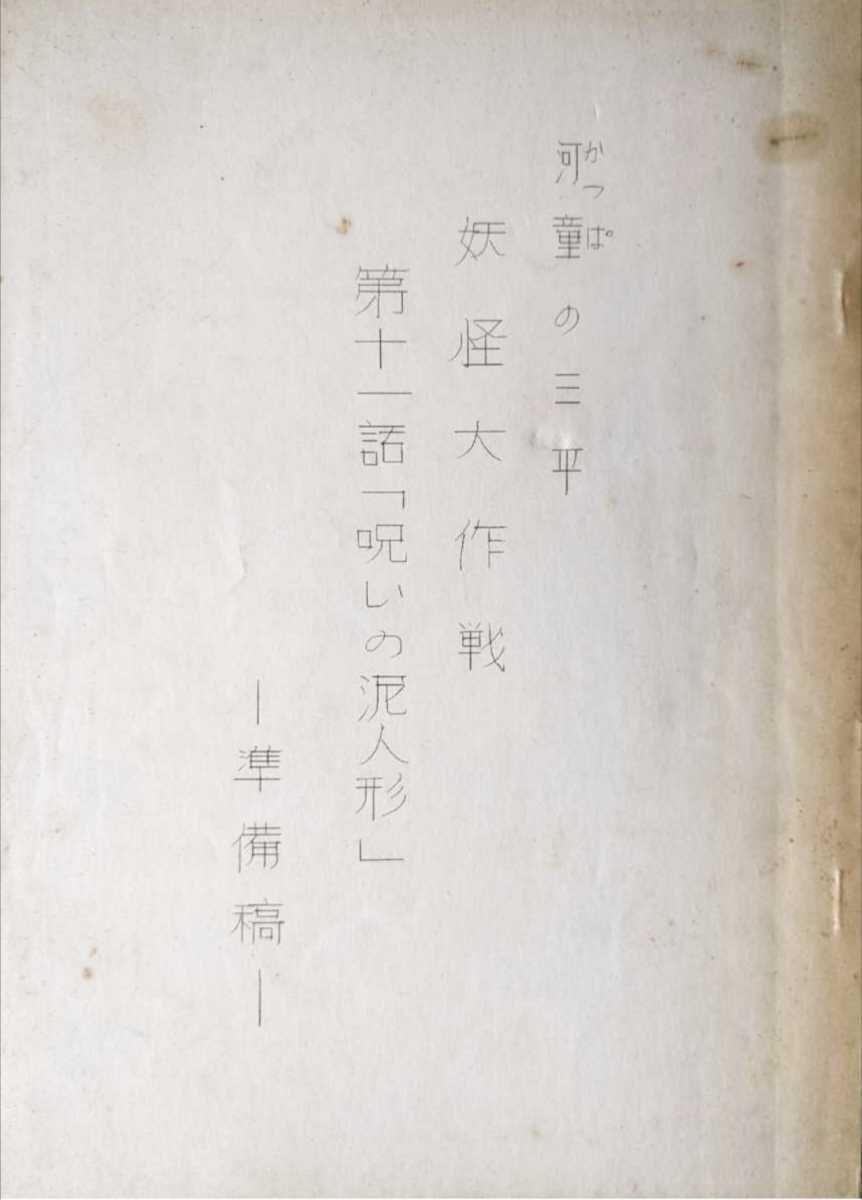 河童の三平
かっぱ
妖怪大作戦
第十一話「呪いの泥人形」
―準備稿―